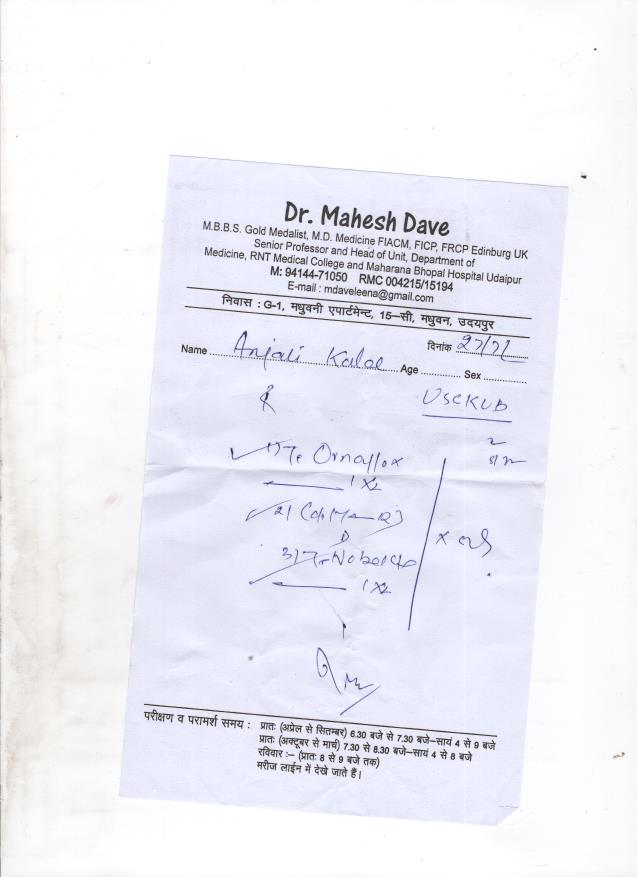 Dr. Mahesh Dave
M.B.B.S. Gold Medalist, M.D. Medicine FIACM, FICP, FRCP Edinburg UK
Senior Professor and Head of Unit, Department of
Medicine, RNT Medical College and Maharana Bhopal Hospital Udaipur
M: 94144-71050 RMC 004215/15194
E-mail : mdaveleena@gmail.com
निवास : G-1, मधुवनी एपार्टमेन्ट, 15-सी, मधुवन, उदयपुर
दिनांक
Name Anjali Age Sex
USG KUB
Ornaflox
1 x 2
2)
3)
1 x 2
परीक्षण व परामर्श समय : प्रातः (अप्रेल से सितम्बर) 6.30 बजे से 7.30 बजे-सायं 4 से 9 बजे
प्रातः (अक्टूबर से मार्च) 7.30 से 8.30 बजे-सायं 4 से 8 बजे
रविवार :- (प्रातः 8 से 9 बजे तक)
मरीज लाईन में देखे जाते हैं।